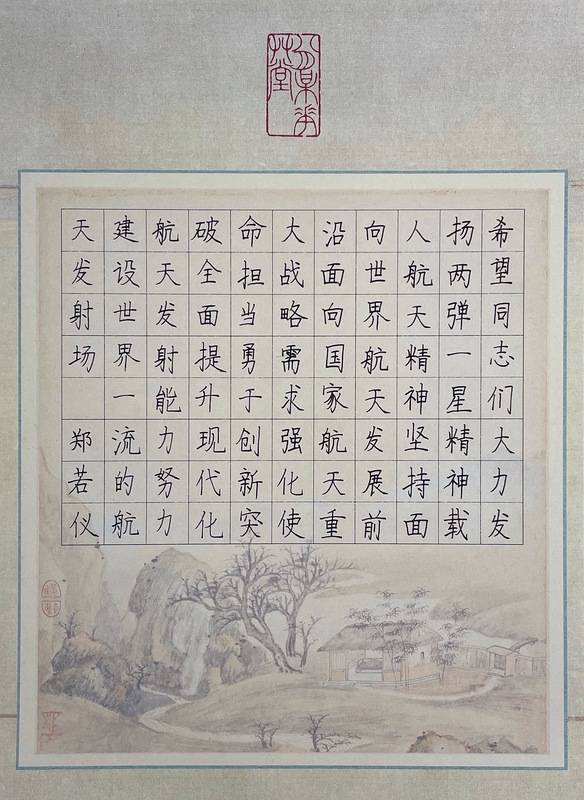 希望同志们大力发
扬两弹一星精神载
人航天精神坚持面
向世界航天发展前
沿面向国家航天重
大战略需求强化使
命担当勇于创新突
破全面提升现代化
航天发射能力努力
建设世界一流的航
天发射场 郑若仪